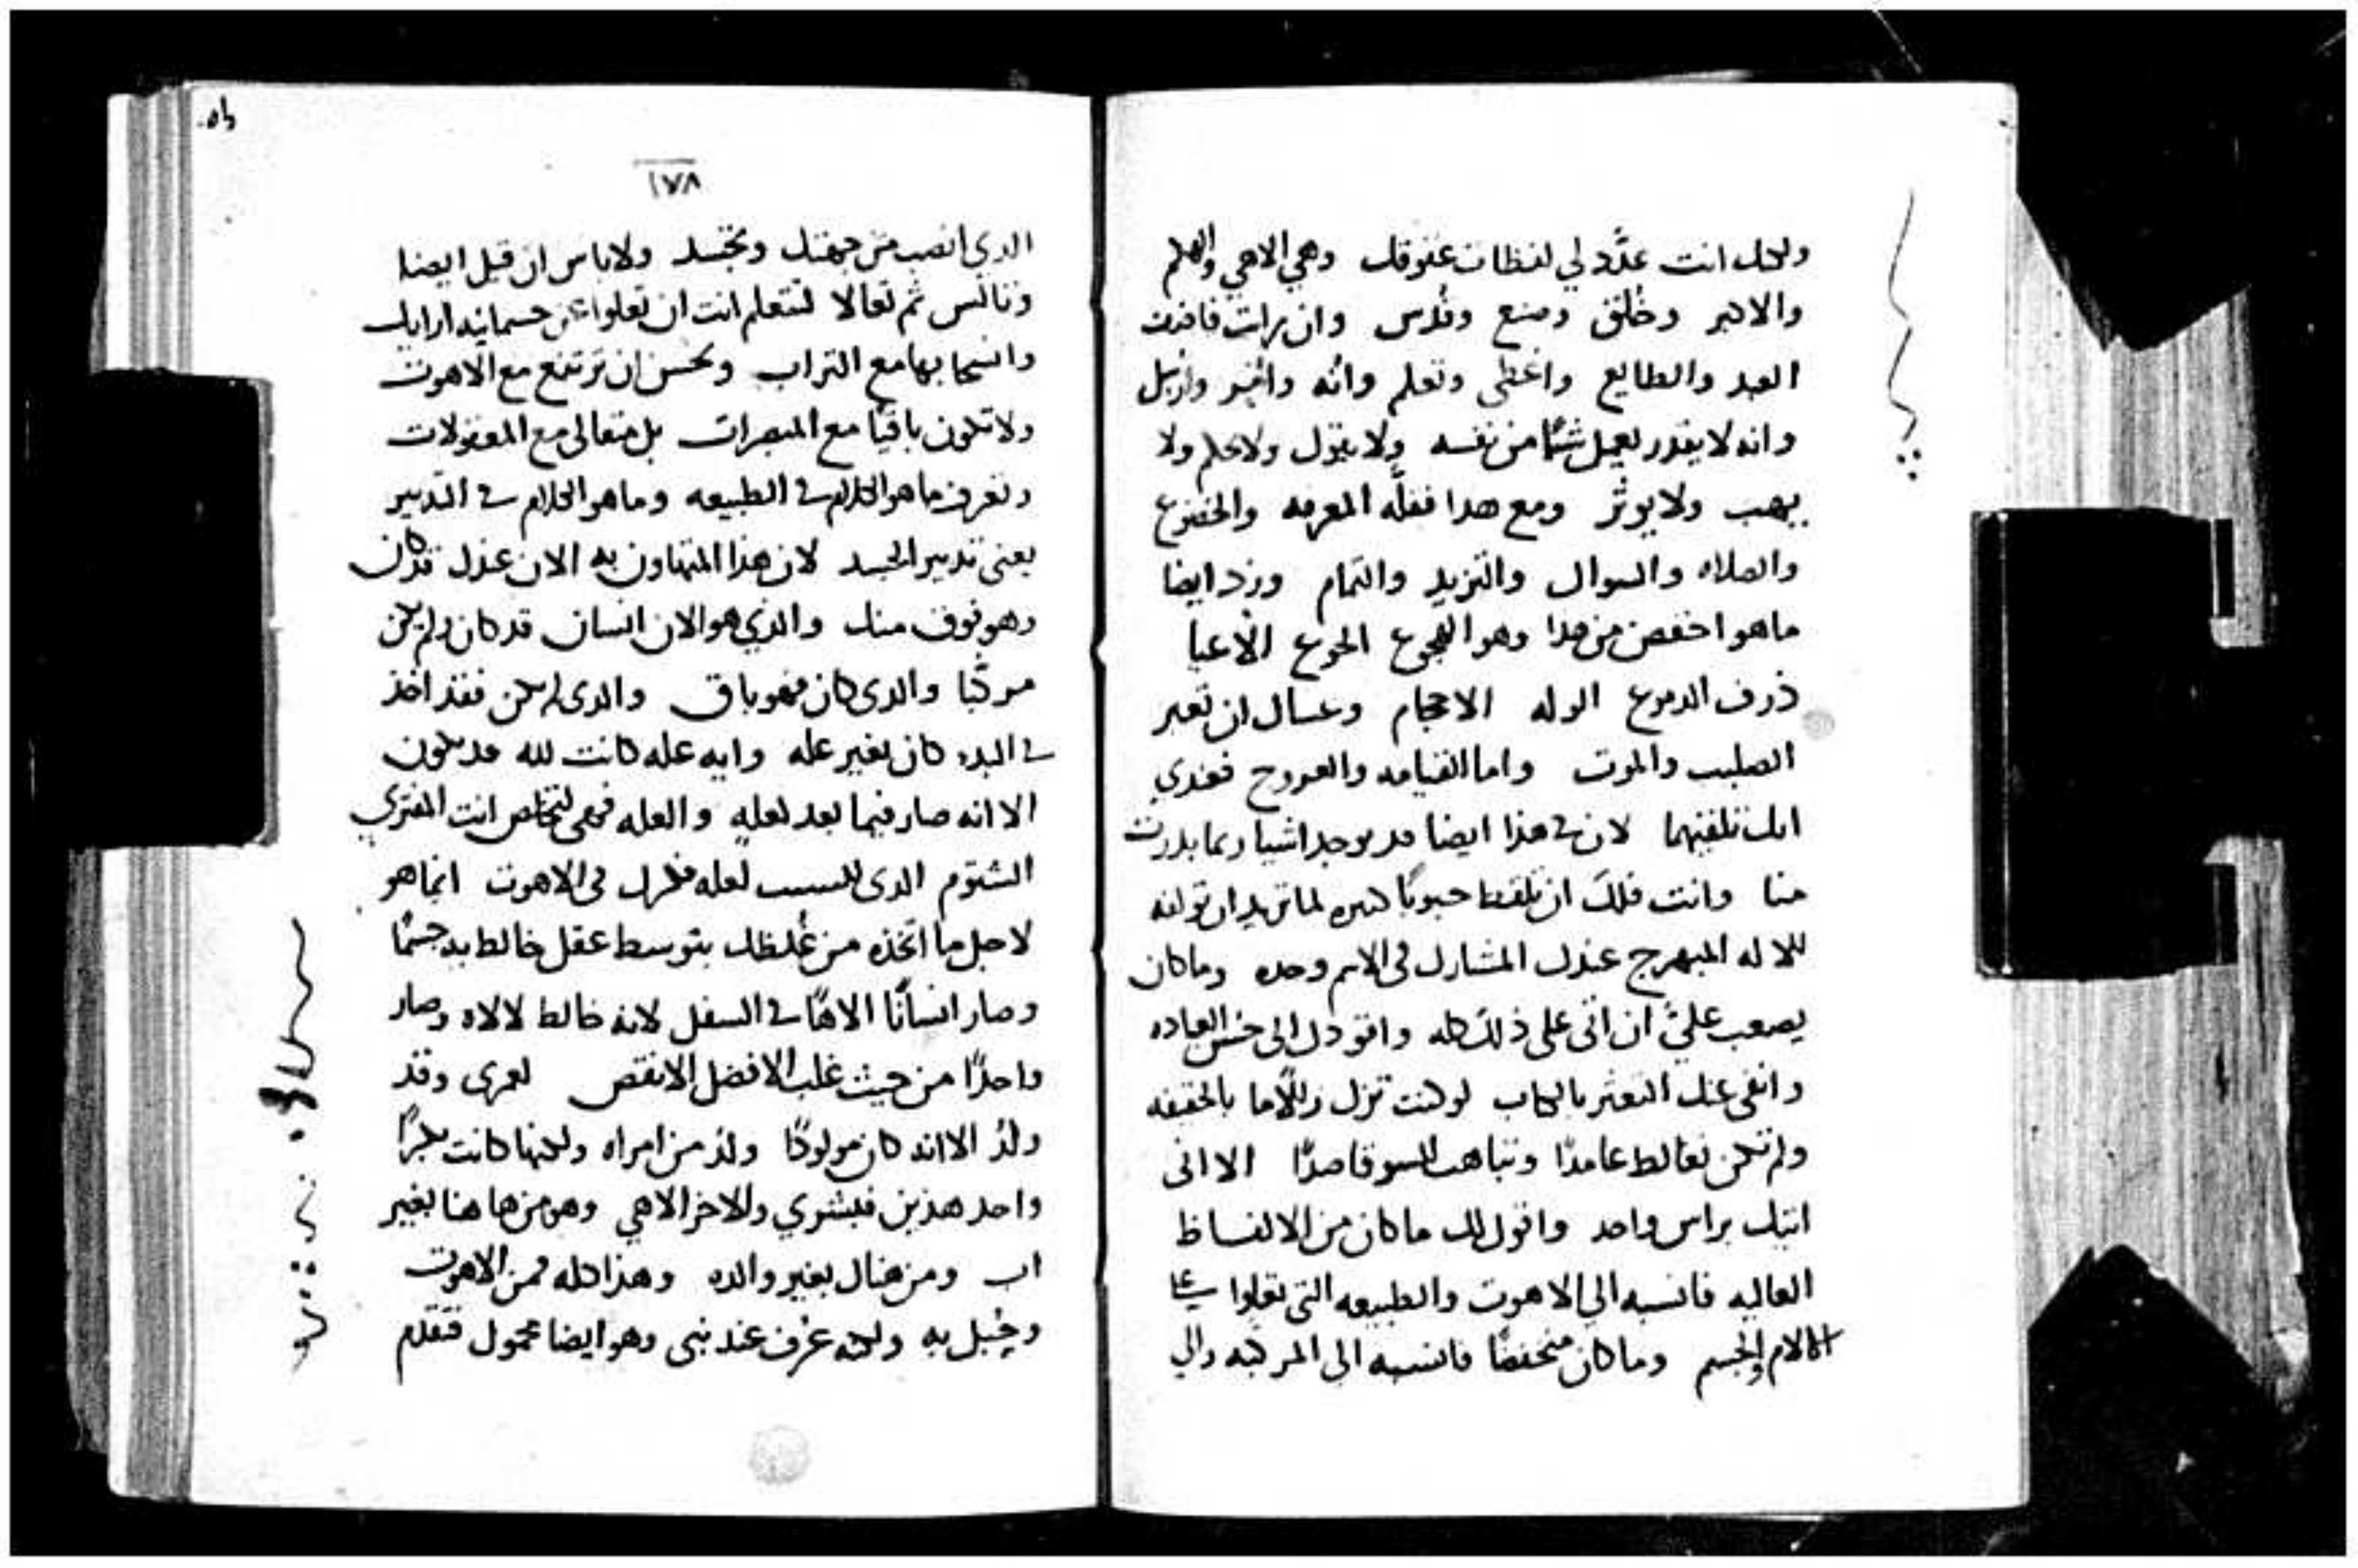 ولكن انت عدّد لي لفظات عقوقك وهي الاهي والهكم
والاكبر وخُلق وصنع وقُدس وان رات فاضف
العبد والطايع واعطى وتعلم وانه وارسل
وانه لا يقدر يعمل شيًا من نفسه ولا يقول ولا يحكم ولا
يهب ولا يوثر ومع هدا فقلّه المعرفه والخضوع
والصلاه والسوال والتزيد والتمام وزد ايضا
ما هو اخفض من هدا وهو الهجوع الجوع الاعيا
ذرف الدموع الوله الاحجام وعساك ان تعير
الصليب والموت واما القيامه والعروج فعندي
انك تلغيهما لان في هذا ايضا قد يوجد اشيا ربما بدرت
منا وانت فلك ان تلقط حبوبًا كثيره لما تريد ان تولفه
للاله المبهرج عندك المشارك في الاسم وحده وما كان
يصعب عليَّ ان اتى على ذلك كله واقودك الى حسن العباده
وانفى عنك التعثر بالكتاب لو كنت تزل زللًا ما بالحقيقه
ولم تكن تغالط عامدًا وتباهت السو قاصدًا الا انى
اتيك براس واحد واقول لك ما كان من الالفاظ
العاليه فانسبه الي الاهوت والطبيعه التي تعلوا على
الالام والجسم وما كان منخفضًا فانسبه الى المركبه والي
١٧٨
الدي انصب من جهتك وتجسد ولا باس ان قيل ايضا
وتانس ثم تعالا لتتعلم انت ان تعلوا عن جسمانيه ارايك
وانسحابها مع التراب وتحسن ان ترتفع مع الاهوت
ولا تكون باقيًا مع المبصرات بل متعالى مع المعقولات
وتعرف ما هو الكلام في الطبيعه وما هو الكلام في التدبير
يعنى تدبير الجسد لان هذا المتهاون به الان عندك قد كان
وهو فوق منك والذي هو الان انسان قد كان ولم يكن
مركّبا والدى كان فهو باق والدى لم يكن فقد اخذ
في البدء كان بغير عله وايه عله كانت لله قد تكون
الا انه صار فيما بعد لعلهٍ والعله فهي لتخلص انت المفتري
الشتوم الدى لعله في الاهوت انما هو
لاجل ما اتخذه من غلظك بتوسط عقل خالط به جسمًا
وصار انسانًا الاهًا في السفل لانه خالط لالاه وصار
واحدًا من حيث غلب الافضل الانقص لعمرى وقد
ولدُ الا انه كان مولودًا ولدُ من امراه ولكنها كانت بكرًا
واحد هذين فبشري والاخر الاهي وهو من هاهنا بغير
اب ومن هناك بغير والده وهذا كله فمن الاهوت
وحُبل به ولكنه عُرف عند نبى وهو ايضا محمول فتقدم